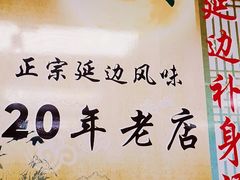 正宗延边风味
20年老店
延边补身